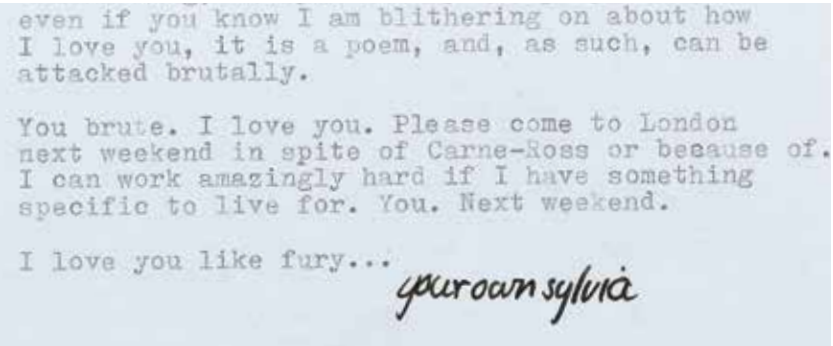 even if you know I am blithering on about how
I love you, it is a poem, and, as such, can be
attacked brutally.
You brute. I love you. Please come to London
next weekend in spite of Carne-Ross or because of.
I can work amazingly hard if I have something
specific to live for. You. Next weekend.
I love you like fury...
your own sylvia